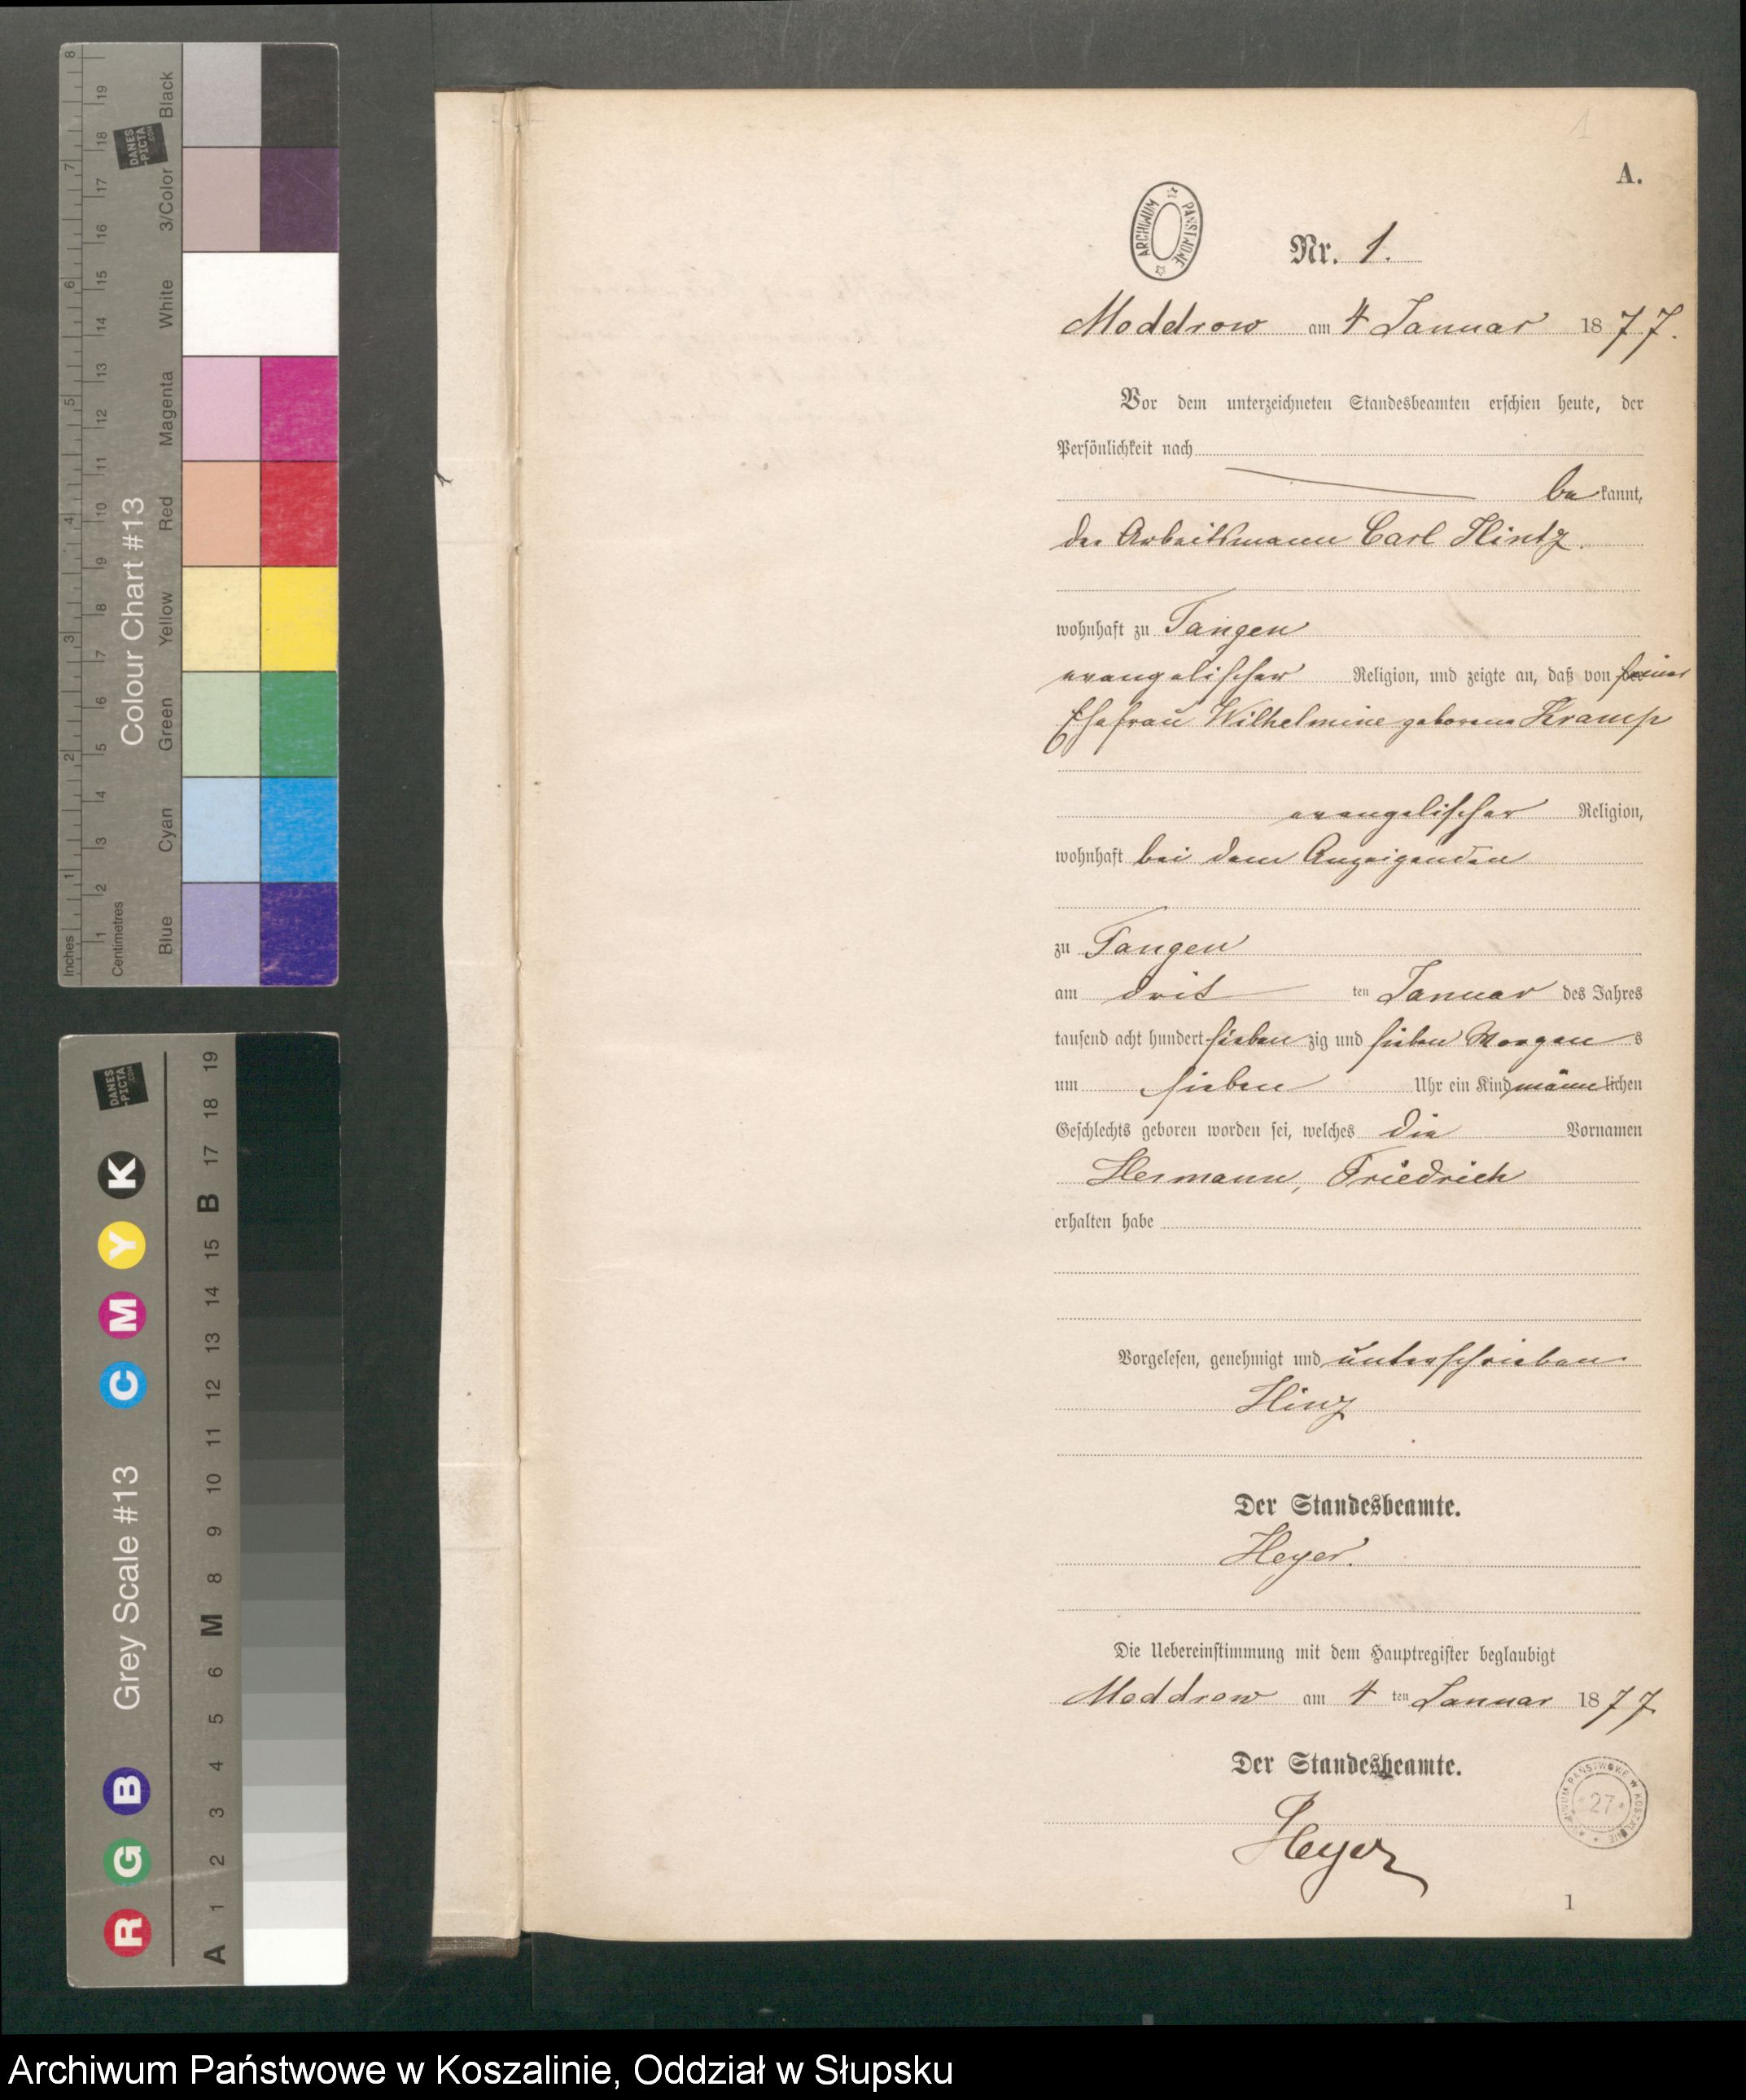 8
19
18
7
17
16
6
15
14
13
5
12
11
4
10
9
3
8
7
6
2
5
4
3
1
2
1
Inches
Centimetres
Colour Chart #13
Black
3/Color
White
Magenta
Red
Yellow
Green
Cyan
Blue
DANES
-PICTA
.COM
DANES
-PICTA
.COM
Grey Scale #13
R G B C M Y K
A 1 2 3 4 5 6 M 8 9 10 11 12 13 14 15 B 17 18 19
1
A.
ARCHIWUM PAŃSTWOWE
Nr. 1.
Moddrow am 4 Januar 1877.
Vor dem unterzeichneten Standesbeamten erschien heute, der
Persönlichkeit nach
bekannt,
der Arbeitsmann Carl Hintz.
wohnhaft zu Tangen
evangelischer Religion, und zeigte an, daß von seiner
Ehefrau Wilhelmine geborene Kramp
evangelischer Religion,
wohnhaft bei dem Anzeigenden
zu Tangen
am drit ten Januar des Jahres
tausend acht hundert sieben zig und sieben Morgens
um sieben Uhr ein Kind männlichen
Geschlechts geboren worden sei, welches die Vornamen
Hermann, Friedrich
erhalten habe
Vorgelesen, genehmigt und unterschrieben.
Hinz
Der Standesbeamte.
Heyer.
Die Uebereinstimmung mit dem Hauptregister beglaubigt
Moddrow am 4 ten Januar 1877
Der Standesbeamte.
Heyer
ARCHIWUM PAŃSTWOWE W KOSZALINIE
27
1
Archiwum Państwowe w Koszalinie, Oddział w Słupsku